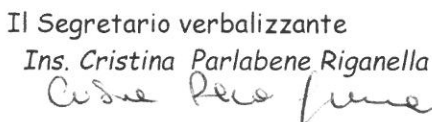 Il Segretario verbalizzante
Ins. Cristina Parlabene Riganella